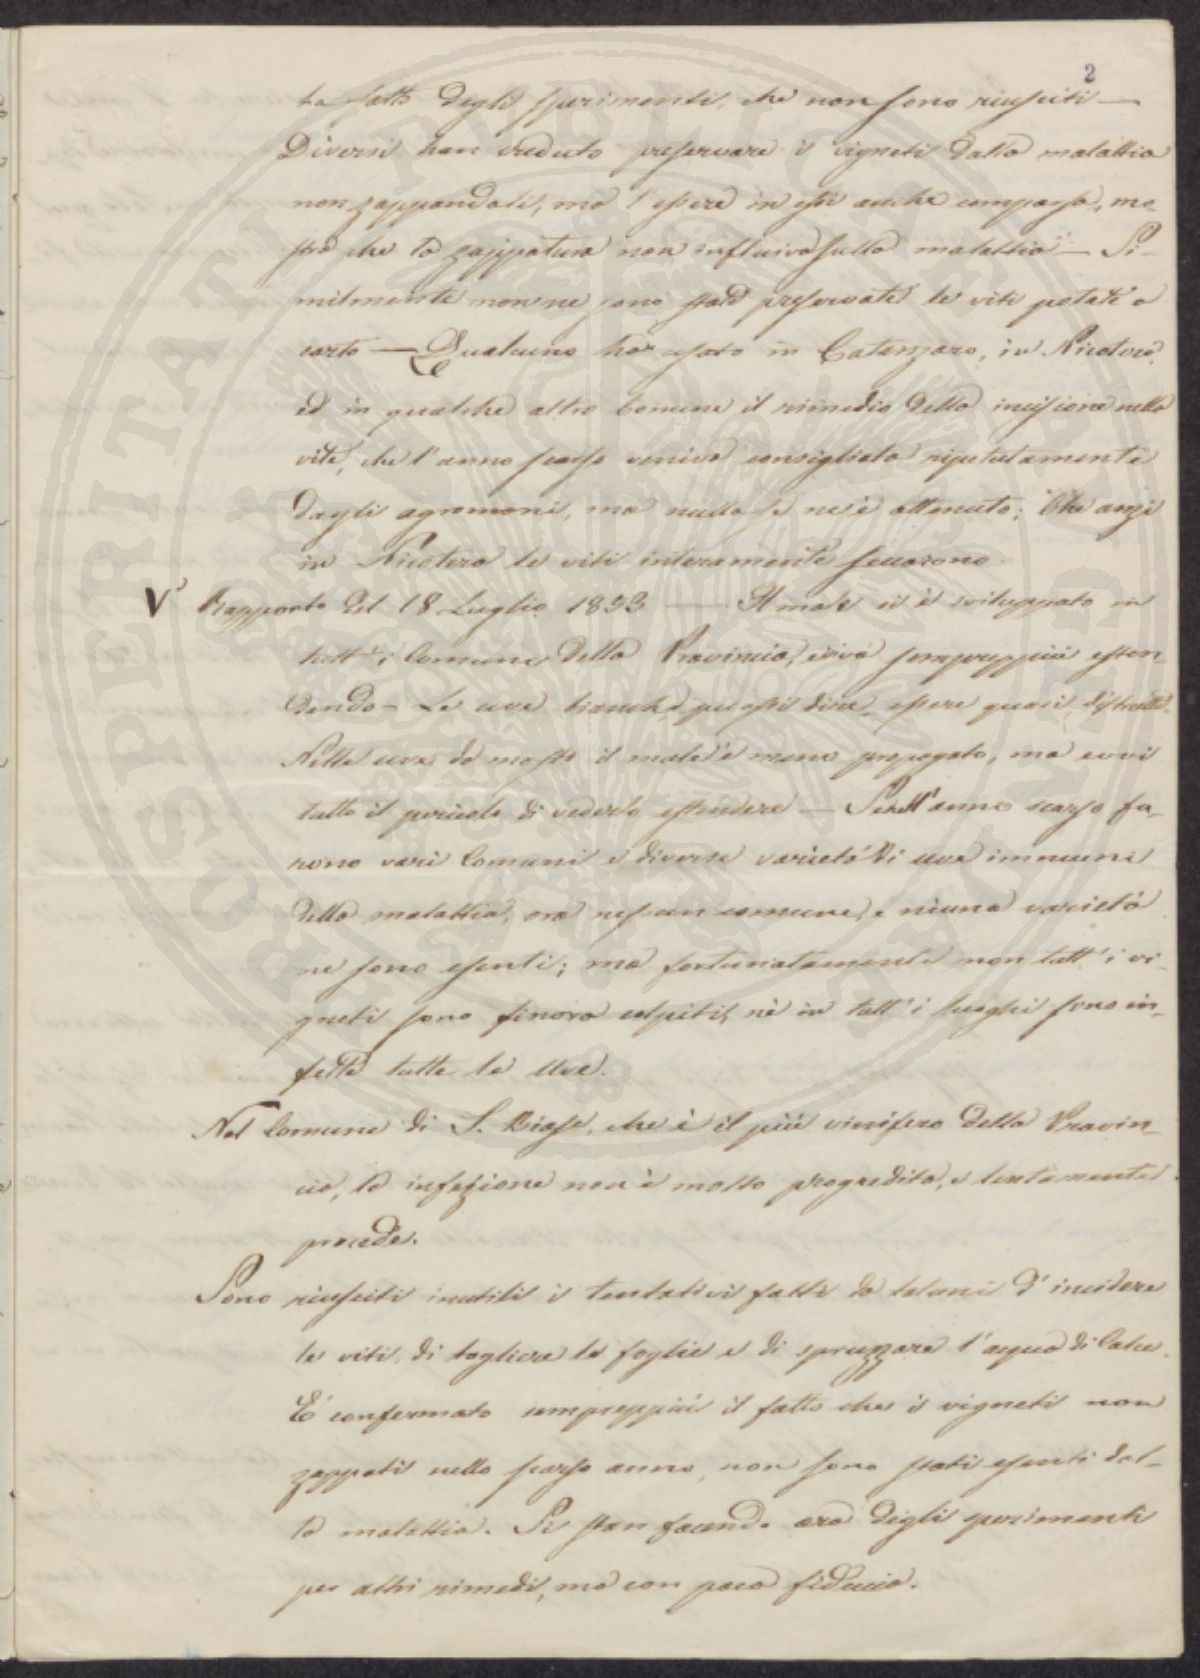 2
ha fatto degli sperimenti, che non sono riusciti —
Diversi han creduto preservare i vigneti dalla malattia
non zappandoli, ma l'essere in essi anche comparsa, mo-
strò che la zappatura non influiva sulla malattia — Si-
milmente non ne sono state preservate le viti potate a
corto — Qualcuno ha usato in Catanzaro, in Nicotera,
ed in qualche altro Comune il rimedio della incisione nella
vite, che l'anno scorso veniva consigliato ripetutamente
dagli agronomi, ma nulla se ne è ottenuto; Che anzi
in Nicotera le viti interamente seccarono
V° Rapporto del 18 Luglio 1853 — Il male si è sviluppato in
tutt'i Comuni della Provincia, e si va sempreppiù esten-
dendo — Le uve bianche può essi dire essere quasi distrutte.
Nelle uve da mosto il male è meno propagato, ma evvi
tutto il pericolo di vederlo estendere — Se nell'anno scorso fu-
rono vari Comuni e diverse varietà di uve immuni
della malattia, ora nessun comune, e niuna varietà
ne sono esenti; ma fortunatamente non tutt'i vi-
gneti sono finora colpiti, nè in tutt'i luoghi sono in-
fette tutte le uve.
Nel Comune di S. Biase, che è il più vinifero della Provin-
cia, la infezione non è molto progredita, e lentamente
procede.
Sono riusciti inutili i tentativi fatti da taluni d'incidere
le viti, di togliere le foglie e di spruzzare l'acqua di Calce.
E' confermato sempreppiù il fatto che i vigneti non
zappati nello scorso anno, non sono stati esenti dal-
la malattia. Si stan facendo ora degli sperimenti
per altri rimedi, ma con poca fiducia.
PROSPERITATI PUBLICAE